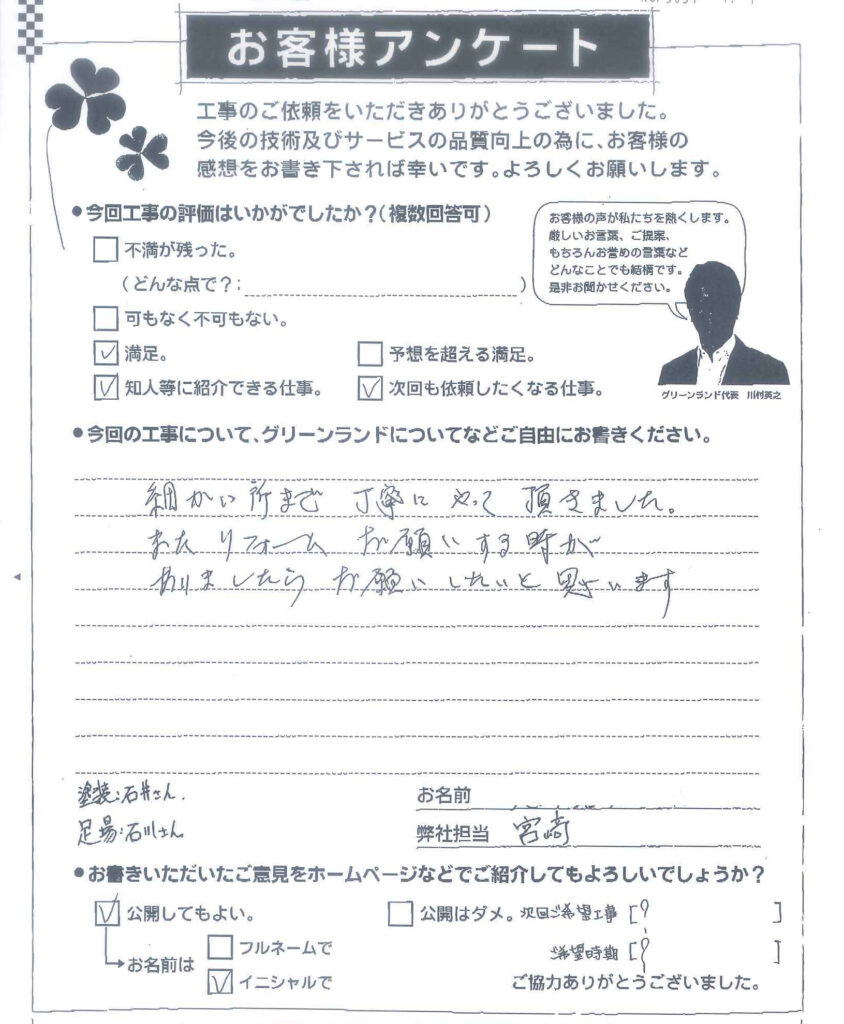 お客様アンケート
工事のご依頼をいただきありがとうございました。
今後の技術及びサービスの品質向上の為に、お客様の
感想をお書き下されば幸いです。よろしくお願いします。
●今回工事の評価はいかがでしたか?(複数回答可)
不満が残った。
(どんな点で?:)
お客様の声が私たちを熱くします。
厳しいお言葉、ご提案、
もちろんお誉めの言葉など
どんなことでも結構です。
是非お聞かせください。
可もなく不可もない。
満足。
予想を超える満足。
知人等に紹介できる仕事。
次回も依頼したくなる仕事。
グリーンランド代表 川村英之
●今回の工事について、グリーンランドについてなどご自由にお書きください。
細かい所まで 丁寧に やって 頂きました。
またリフォーム お願いする時が
ありましたら お願いしたいと思います
塗装:石井さん.
お名前
足場:石川さん
弊社担当 宮﨑
●お書きいただいたご意見をホームページなどでご紹介してもよろしいでしょうか?
公開してもよい。
公開はダメ。次回ご希望工事 [? ]
お名前は
フルネームで
ご希望時期 [? ]
イニシャルで
ご協力ありがとうございました。